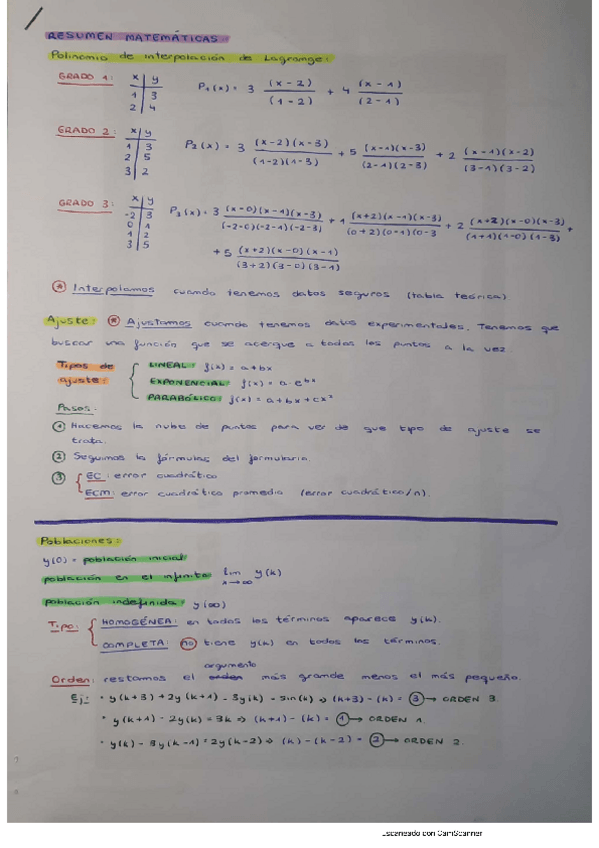 RESUMEN MATEMÁTICAS:
Polinomio de interpolación de Lagrange:
GRADO 1: x | y
1 | 3
2 | 4
P₁(x) = 3 (x-2)/(1-2) + 4 (x-1)/(2-1)
GRADO 2: x | y
1 | 3
2 | 5
3 | 2
P₂(x) = 3 (x-2)(x-3)/(1-2)(1-3) + 5 (x-1)(x-3)/(2-1)(2-3) + 2 (x-1)(x-2)/(3-1)(3-2)
GRADO 3: x | y
-2 | 3
0 | 1
1 | 2
3 | 5
P₃(x) = 3 (x-0)(x-1)(x-3)/(-2-0)(-2-1)(-2-3) + 1 (x+2)(x-1)(x-3)/(0+2)(0-1)(0-3 + 2 (x+2)(x-0)(x-3)/(1+1)(1-0)(1-3) +
+ 5 (x+2)(x-0)(x-1)/(3+2)(3-0)(3-1)
* Interpolamos cuando tenemos datos seguros (tabla teórica)
Ajuste: * Ajustamos cuando tenemos datos experimentales. Tenemos que
buscar una función que se acerque a todos los puntos a la vez.
Tipos de ajuste: LINEAL: f(x) = a+bx
EXPONENCIAL: f(x) = a·e^bx
PARABÓLICO: f(x) = a+bx+cx²
Pasos:
1 Hacemos la nube de puntos para ver de que tipo de ajuste se
trata.
2 Seguimos la fórmulas del formulario.
3 EC: error cuadrático
ECM: error cuadrático promedio (error cuadrático/n).
Poblaciones:
y(0) = población inicial
población en el infinito: lim x→∞ y(k)
población indefinida: y(∞)
Tipo: HOMOGÉNEA: en todos los términos aparece y(k).
COMPLETA: no tiene y(k) en todos los términos.
argumento
Orden: restamos el orden más grande menos el más pequeño.
Ej: · y(k+3) + 2y(k+1) - 3y(k) - sin(k) ⇒ (k+3) - (k) = 3 → ORDEN 3.
· y(k+1) - 2y(k) = 3k ⇒ (k+1) - (k) = 1 → ORDEN 1.
· y(k) - 3y(k-1) = 2y(k-2) ⇒ (k) - (k-2) = 2 → ORDEN 2.
Escaneado con CamScanner